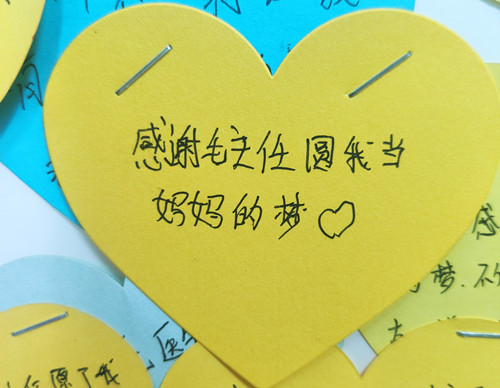 感谢毛主任圆我当
妈妈的梦♡
感
梦.不
医
原了我